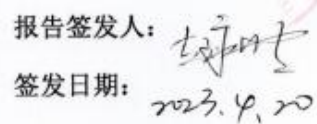 报告签发人：
签发日期： 2023.4.20